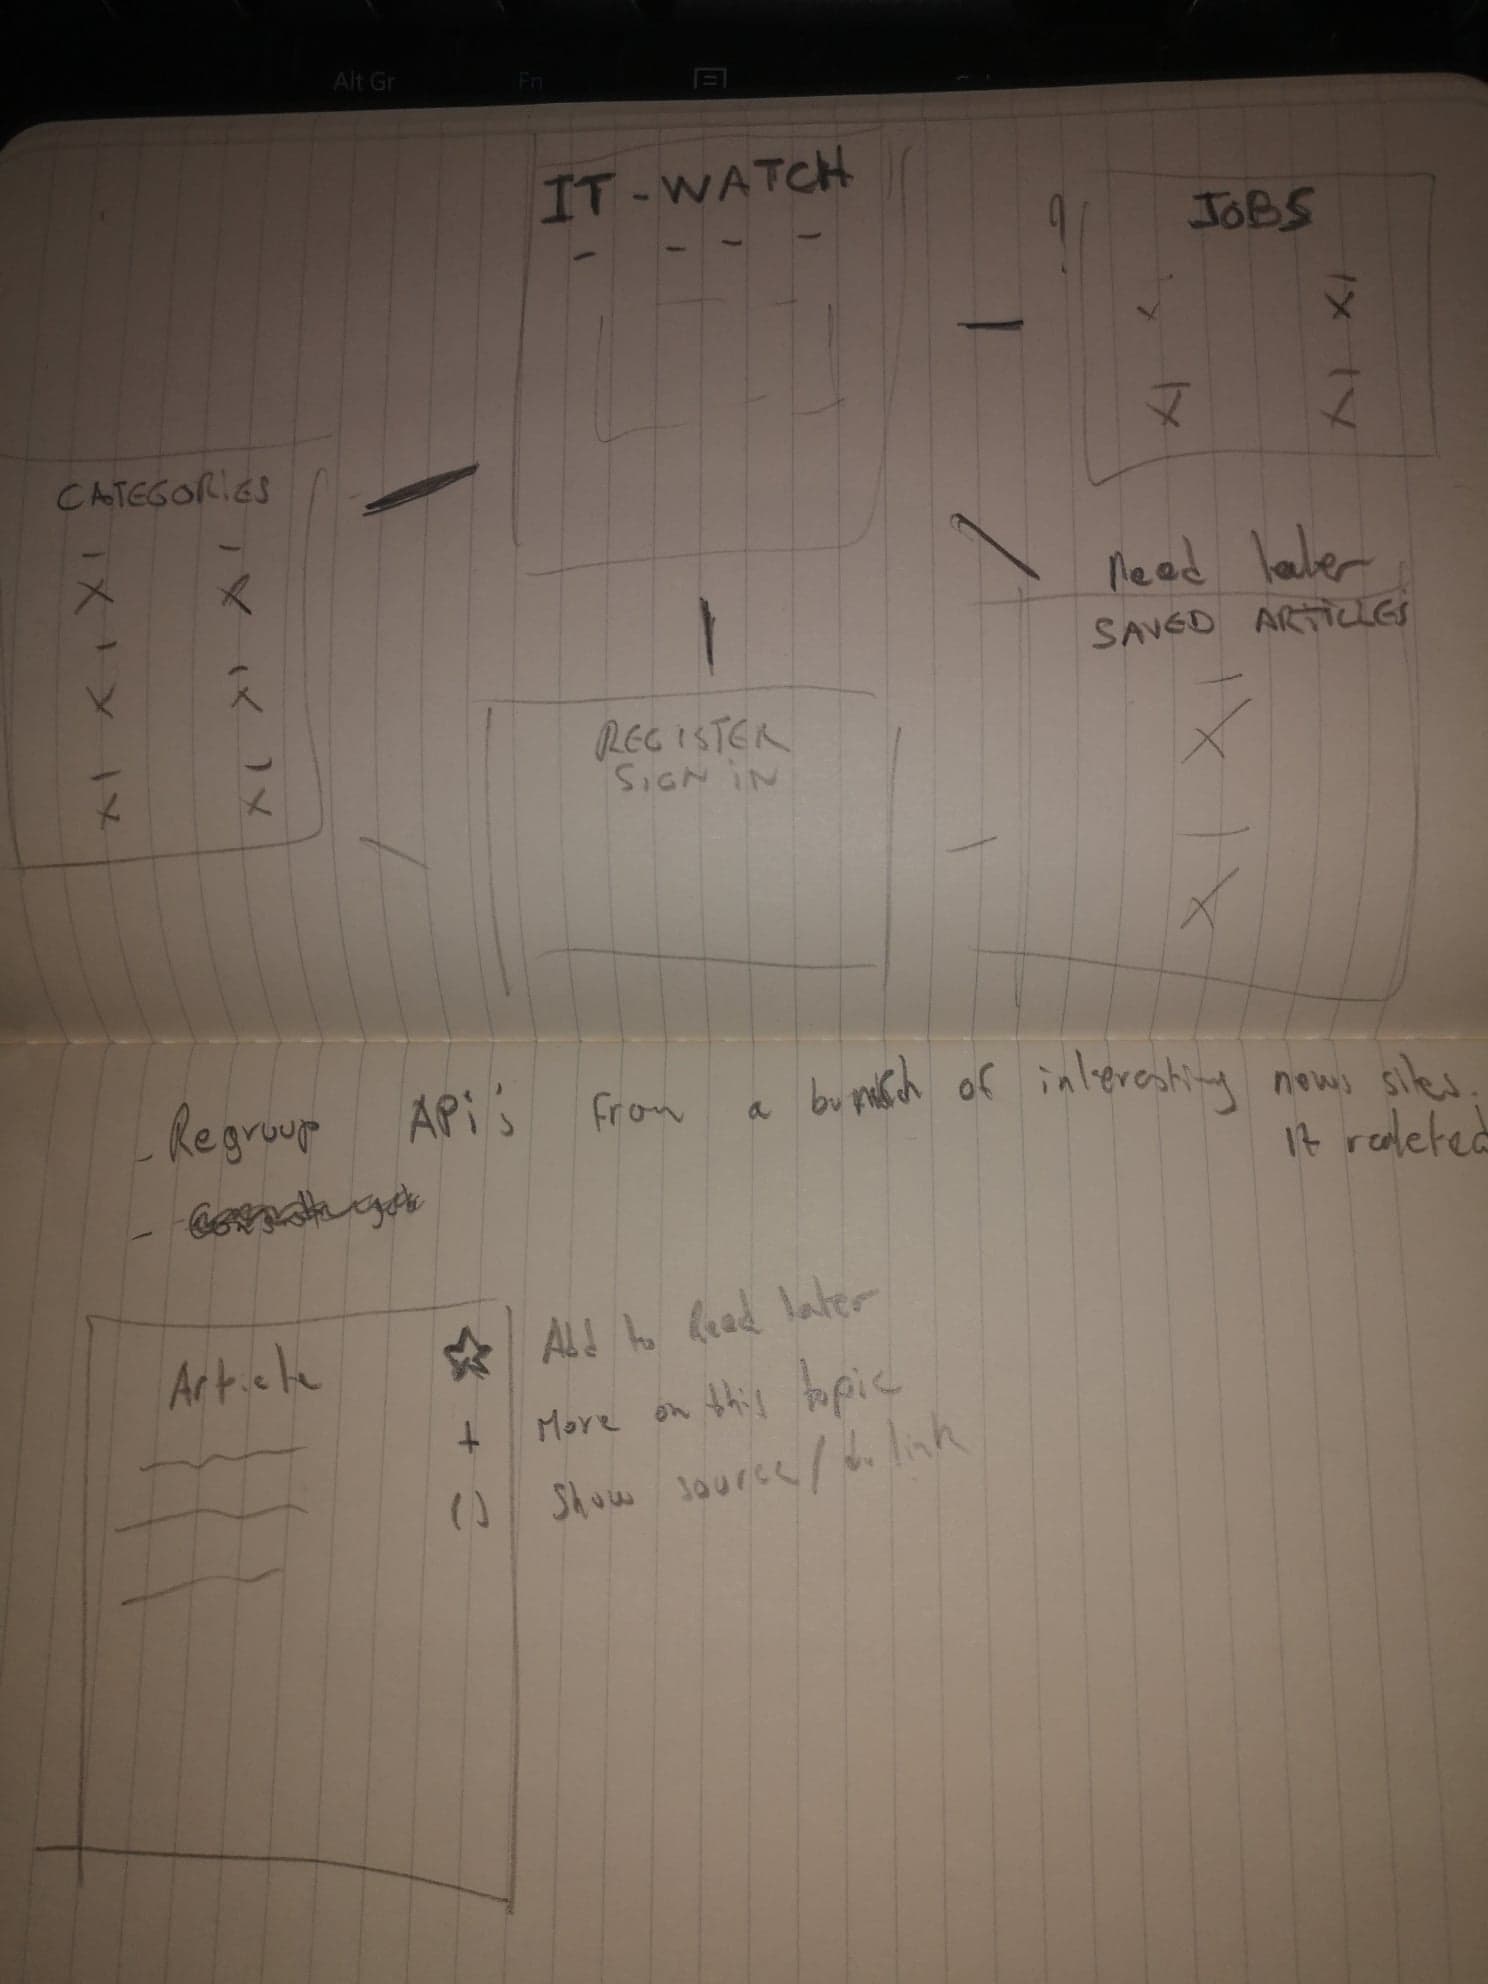 Alt Gr
Fn
IT-WATCH
JOBS
CATEGORIES
Read later
SAVED ARTICLES
REGISTER
SIGN IN
- Regroup APi's From a bunch of interesting news sites.
It related
-
Article
Add to Read later
+ More on this topic
() Show source / link